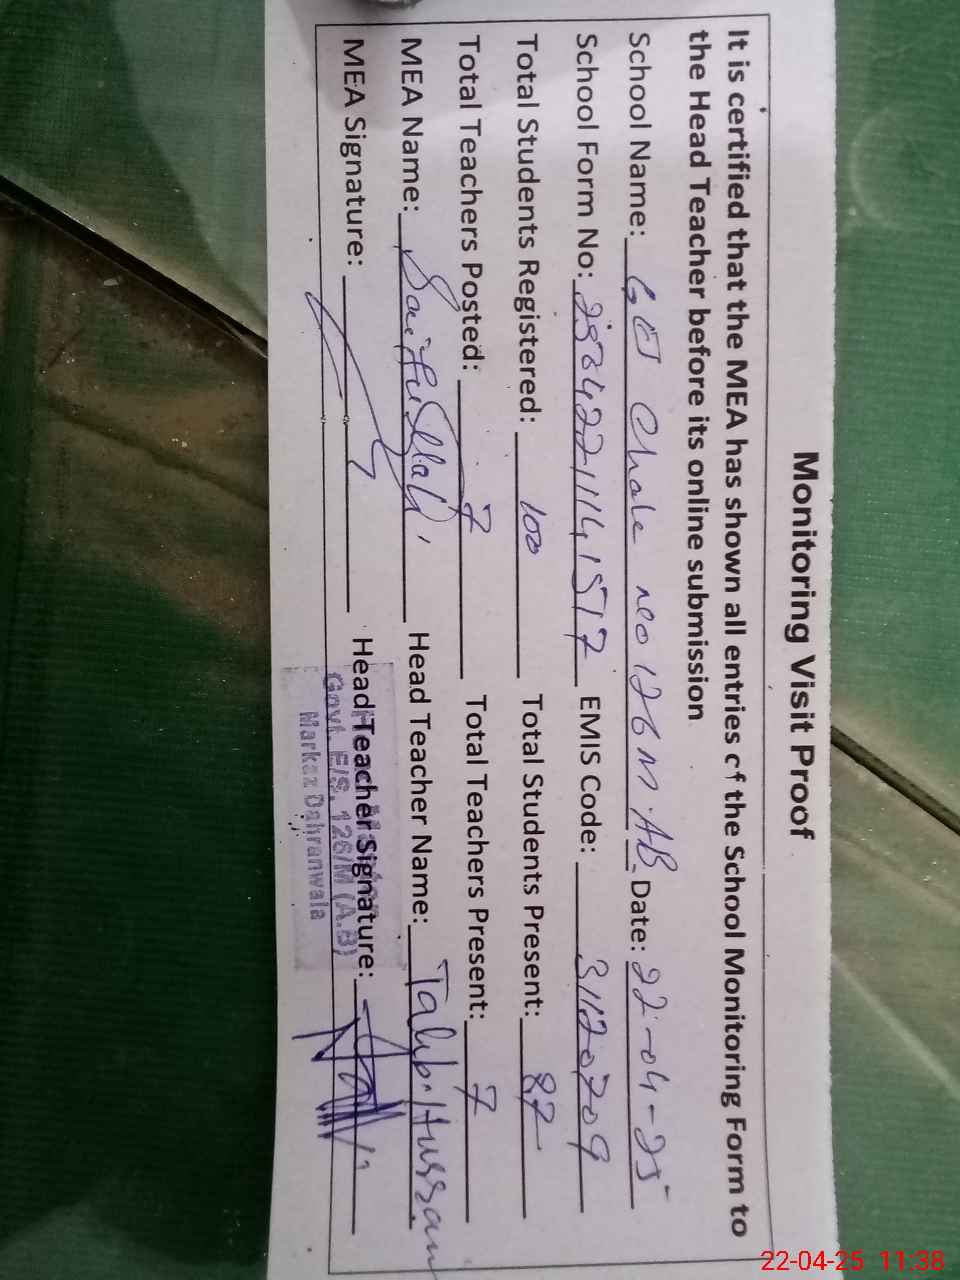 Monitoring Visit Proof
It is certified that the MEA has shown all entries of the School Monitoring Form to
the Head Teacher before its online submission
School Name: GES Chak no 126 M.AB Date: 22-04-25
School Form No: EMIS Code: 31120709
Total Students Registered: 100 Total Students Present: 87
Total Teachers Posted: 7 Total Teachers Present: 7
MEA Name: Saifullah Head Teacher Name: Talib Hussain
MEA Signature: Head Teacher Signature:
Govt. E/S. 126/M (A.B)
Markaz Dahranwala
22-04-25 11:38